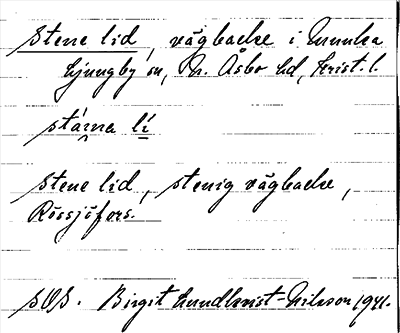 Stene lid, vägbacke i Munka
Ljungby sn, N. Åsbo hd, Krist. l.
stá̂rna lí
Stene lid, stenig vägbacke,
Rössjöfors.
SOS. Birgit Lundkvist-Nilsson 1941.